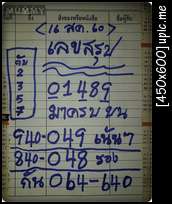 MUMMY
<16 สค. 60>
เลขสรุป
ต้น
2
3
5
7
01489
มาครบ บน
940-049 เน้นๆ
840-048 รอง
กัน 064-640
[450x600] upic.me